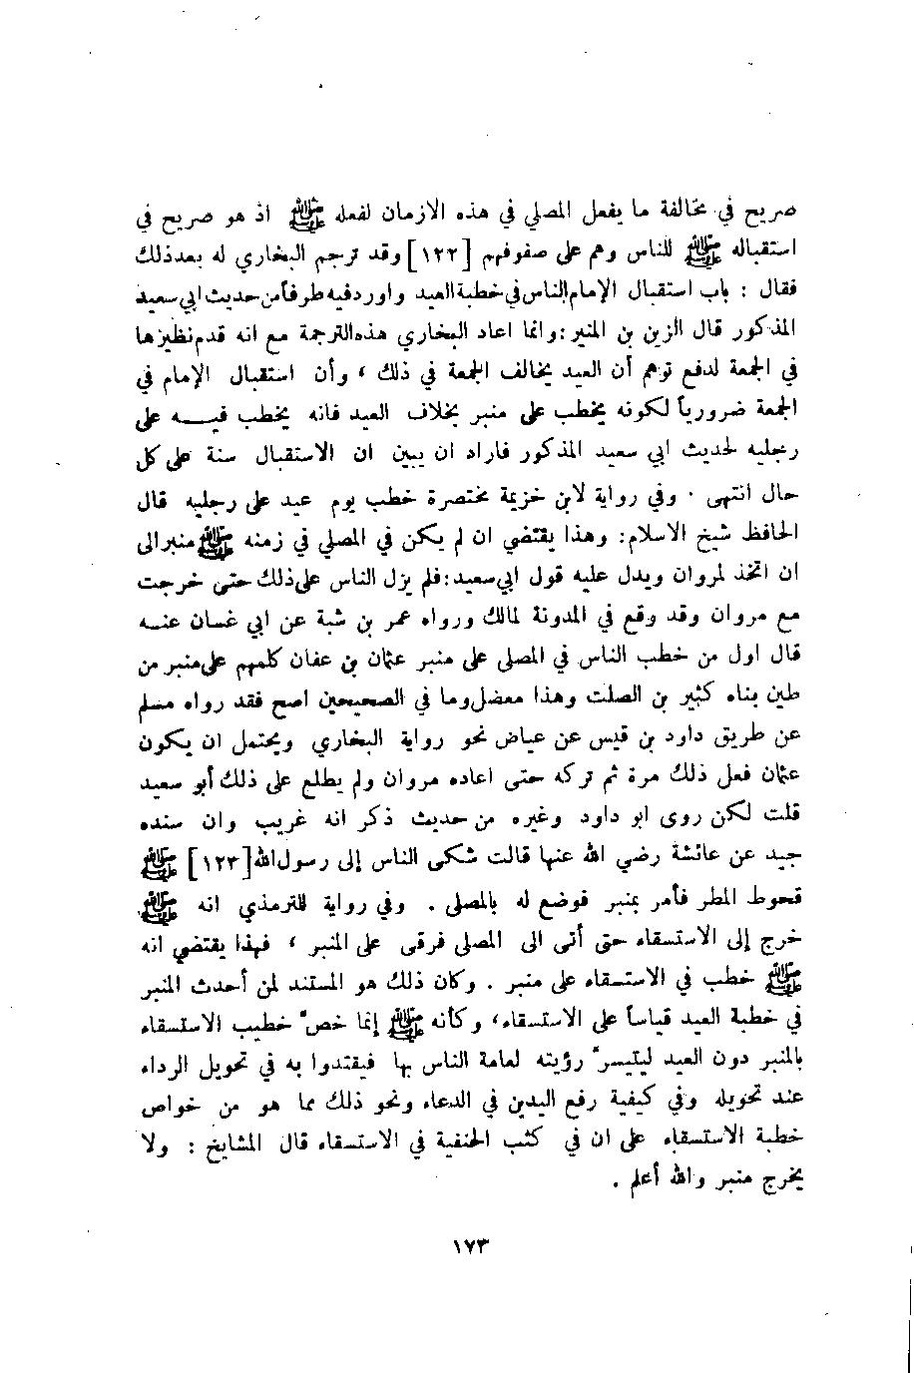 صريح في مخالفة ما يفعل المصلي في هذه الازمان لفعله ﷺ اذ هو صريح في
استقباله ﷺ للناس وهم على صفوفهم [١٢٢] وقد ترجم البخاري له بعد ذلك
فقال : باب استقبال الإمام الناس في خطبة العيد واورد فيه طرفاً من حديث ابي سعيد
المذكور قال الزين بن المنير : وانما اعاد البخاري هذه الترجمة مع انه قدم نظيرها
في الجمعة لدفع توهم أن العيد يخالف الجمعة في ذلك ، وأن استقبال الإمام في
الجمعة ضرورياً لكونه يخطب على منبر بخلاف العيد فانه يخطب فيه على
رجليه لحديث ابي سعيد المذكور فاراد ان يبين ان الاستقبال سنة على كل
حال انتهى . وفي رواية لابن خزيمة مختصرة خطب يوم عيد على رجليه قال
الحافظ شيخ الاسلام : وهذا يقتضي ان لم يكن في المصلي في زمنه ﷺ منبر الى
ان اتخذ لمروان ويدل عليه قول ابي سعيد : فلم يزل الناس على ذلك حتى خرجت
مع مروان وقد وقع في المدونة لمالك ورواه عمر بن شبة عن ابي غسان عنه
قال اول من خطب الناس في المصلى على منبر عثمان بن عفان كلمهم على منبر من
طين بناه كثير بن الصلت وهذا معضل وما في الصحيحين اصح فقد رواه مسلم
عن طريق داود بن قيس عن عياض نحو رواية البخاري ويحتمل ان يكون
عثمان فعل ذلك مرة ثم تركه حتى اعاده مروان ولم يطلع على ذلك أبو سعيد
قلت لكن روى ابو داود وغيره من حديث ذكر انه غريب وان سنده
جيد عن عائشة رضي الله عنها قالت شكى الناس إلى رسول الله [١٢٣] ﷺ
قحوط المطر فأمر بمنبر فوضع له بالمصلى . وفي رواية للترمذي انه ﷺ
خرج إلى الاستسقاء حتى أتى الى المصلى فرقى على المنبر ، فهذا يقتضي انه
ﷺ خطب في الاستسقاء على منبر . وكان ذلك هو المستند لمن أحدث المنبر
في خطبة العيد قياساً على الاستسقاء ، وكأنه ﷺ إنما خصّ خطيب الاستسقاء
بالمنبر دون العيد ليتيسرّ رؤيته لعامة الناس بها فيقتدوا به في تحويل الرداء
عند تحويله وفي كيفية رفع اليدين في الدعاء ونحو ذلك مما هو من خواص
خطبة الاستسقاء على ان في كتب الحنفية في الاستسقاء قال المشايخ : ولا
يخرج منبر والله أعلم .
١٧٣